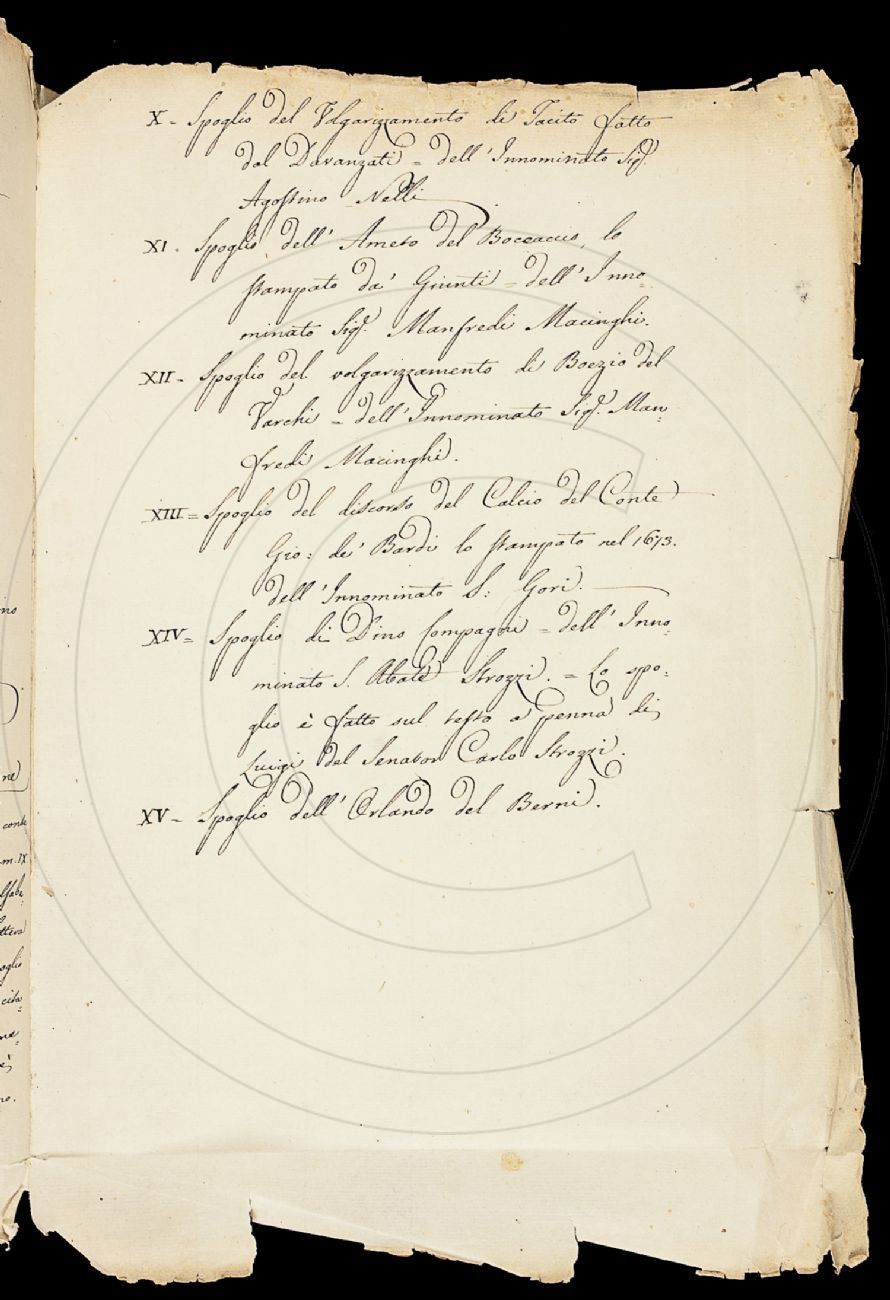 X = Spoglio del Volgarizzamento di Tacito fatto
dal Davanzati = dell'Innominato Sigr.
Agostino Nelli
XI. Spoglio dell'Ameto del Boccaccio, lo
stampato da' Giunti = dell'Inno
minato Sigr. Manfredi Macinghi.
XII = Spoglio del volgarizzamento di Boezio del
Varchi = dell'Innominato Sigr. Man=
fredi Macinghi.
XIII = Spoglio del discorso del Calcio del Conte
Gio: de' Bardi lo stampato nel 1673.
dell'Innominato S: Gori.
XIV = Spoglio di Dino Compagni = dell'Inno=
minato S. Abate Strozzi. = Lo spo=
glio è fatto sul testo a penna di
Luigi del Senator Carlo Strozzi.
XV = Spoglio dell'Orlando del Berni.
conte
m. IX
oglio